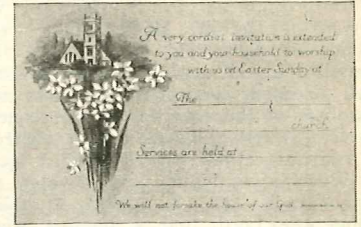 A very cordial invitation is extended
to you and your household to worship
with us on Easter Sunday at
The
church.
Services are held at
We will not forsake the house of our God.